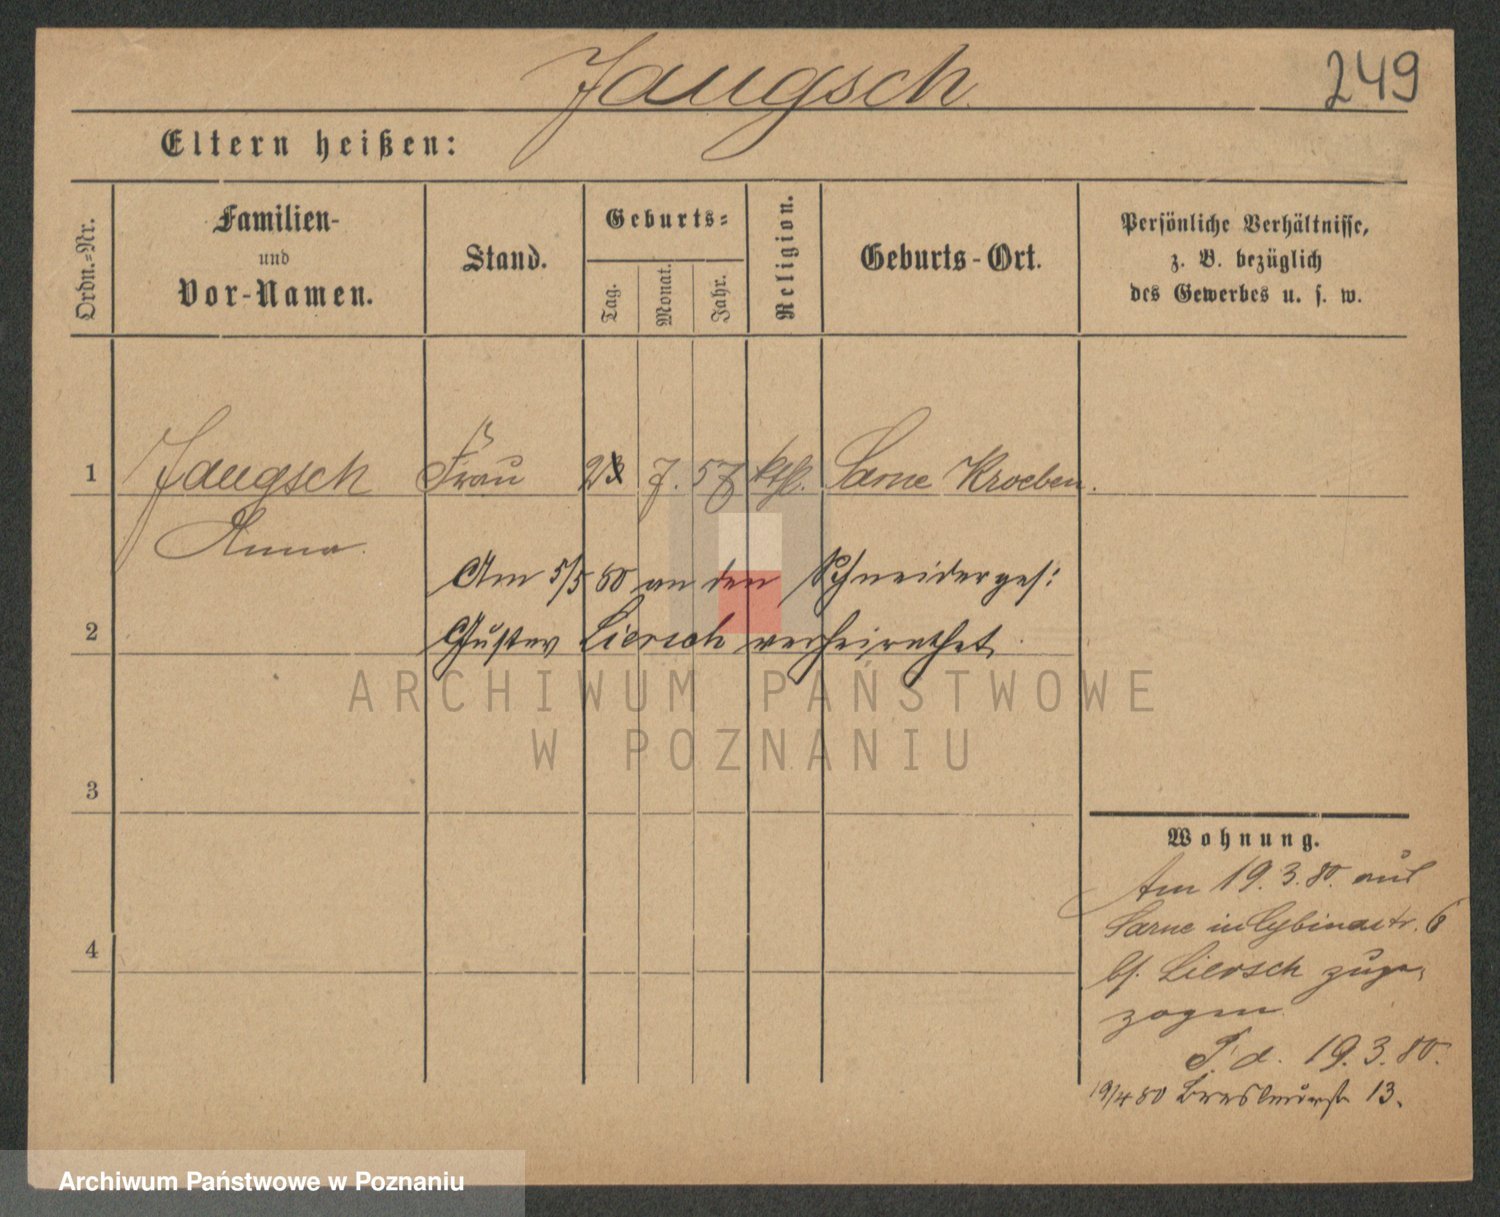 Jaugsch
249
Eltern heißen:
Ordn.-Nr.
Familien-
und
Vor-Namen.
Stand.
Geburts-
Tag.
Monat.
Jahr.
Religion.
Geburts-Ort.
Persönliche Verhältnisse,
z. B. bezüglich
des Gewerbes u. s. w.
1 Jaugsch Frau 7. 57 kth. Sarne Kroeben.
Anna
Am 5/5 80 an den Schneiderges:
2 Gustav Liersch verheirathet.
ARCHIWUM PAŃSTWOWE
W POZNANIU
3
4
Wohnung.
Am 19.3.80. aus
Sarne in Cybinastr. 6
bf. Liersch zuge-
zogen.
P. d. 19.3.80.
19/4 80 Breslauerstr 13.
Archiwum Państwowe w Poznaniu